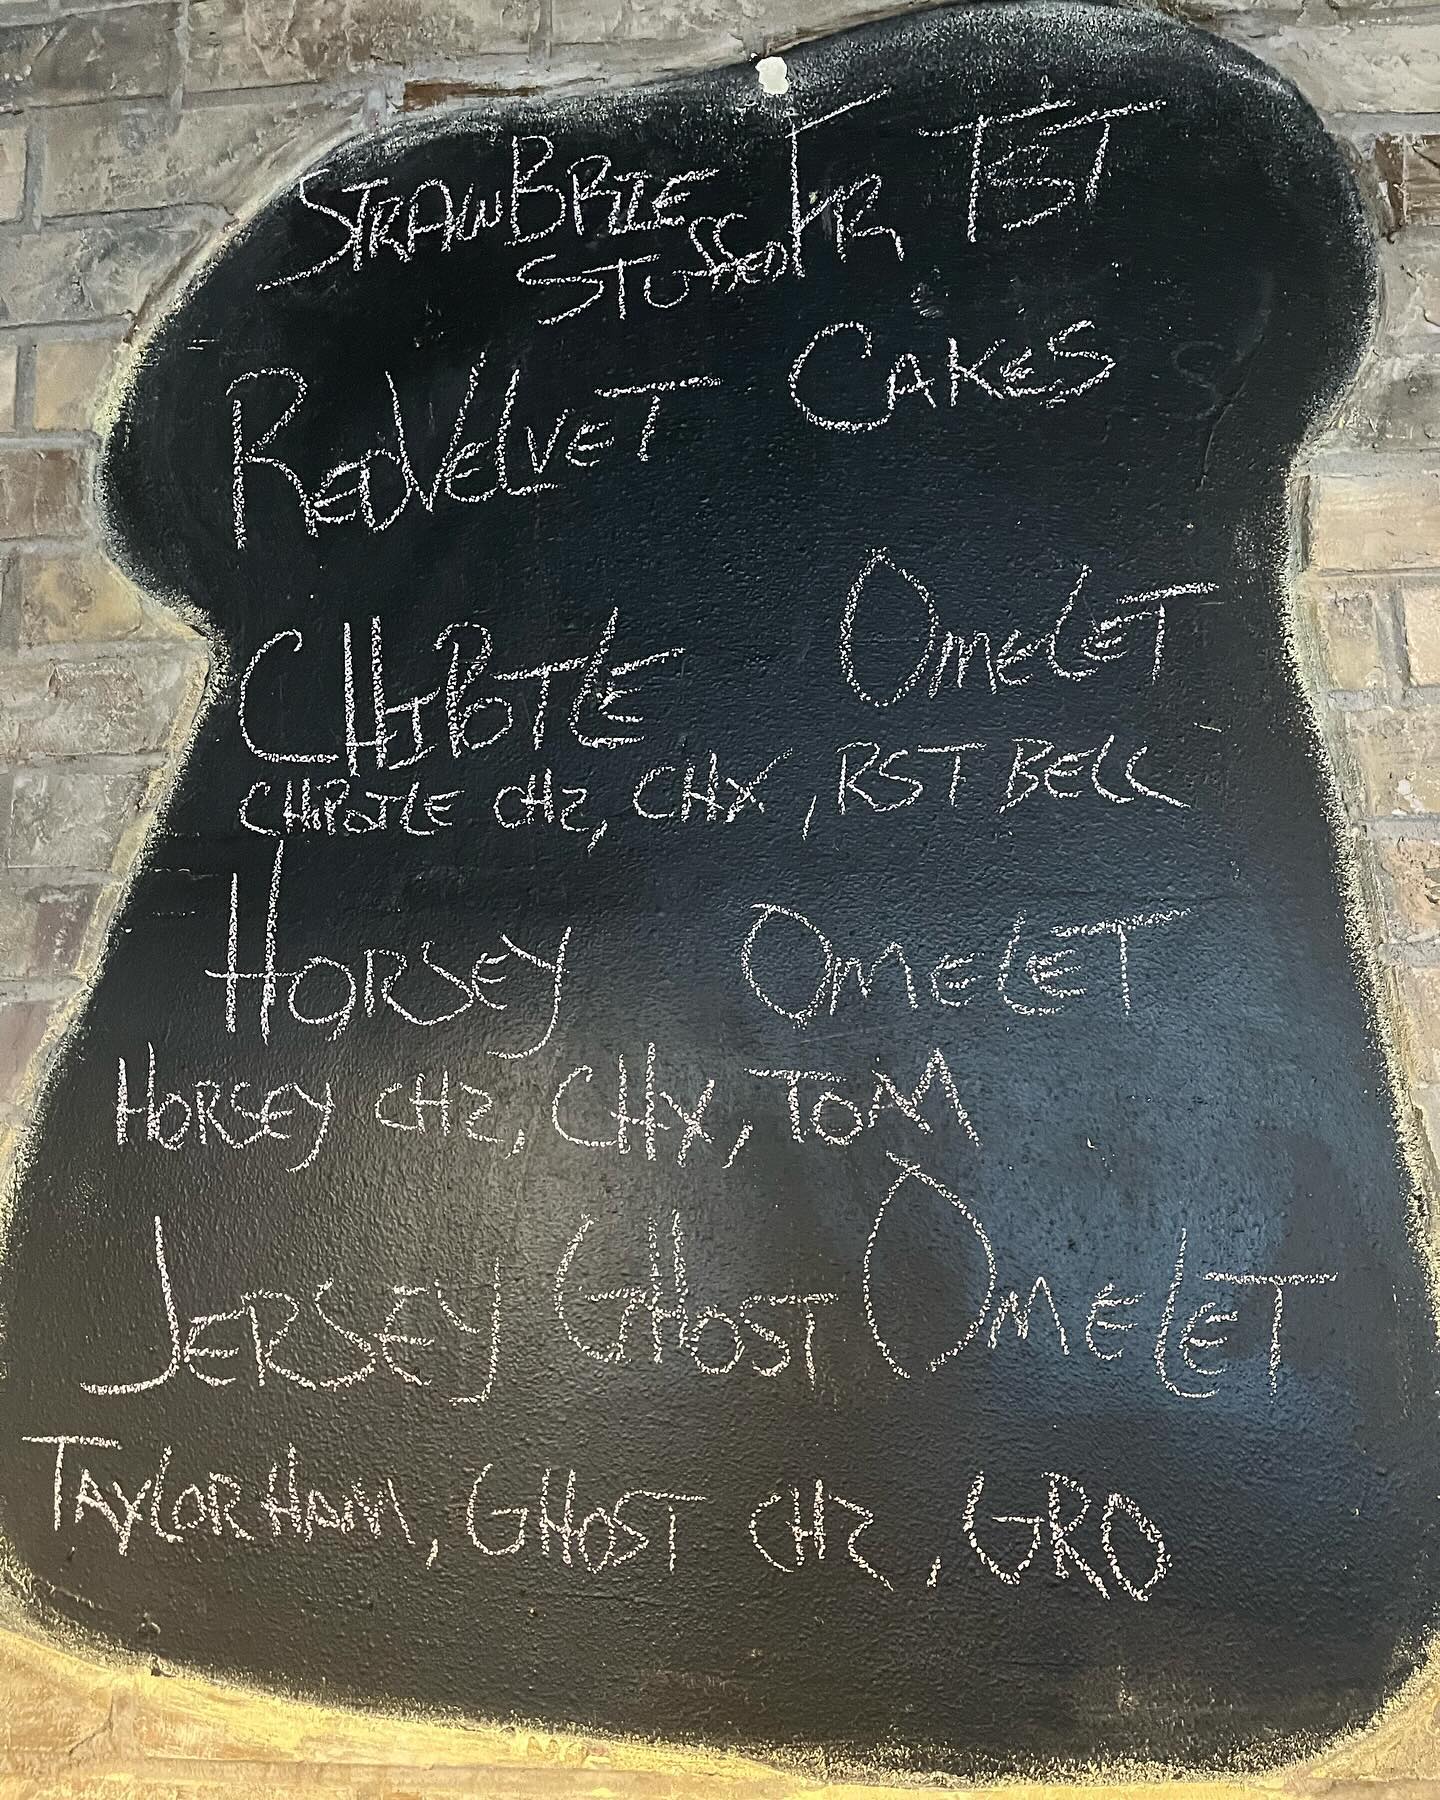 STRAWBRIE FR TST
STUFFED
RED VELVET CAKES
CHIPOTLE OMELET
CHIPOTLE CHZ, CHX, RST BELL
HORSEY OMELET
HORSEY CHZ, CHX, TOM
JERSEY GHOST OMELET
TAYLOR HAM, GHOST CHZ, GRO